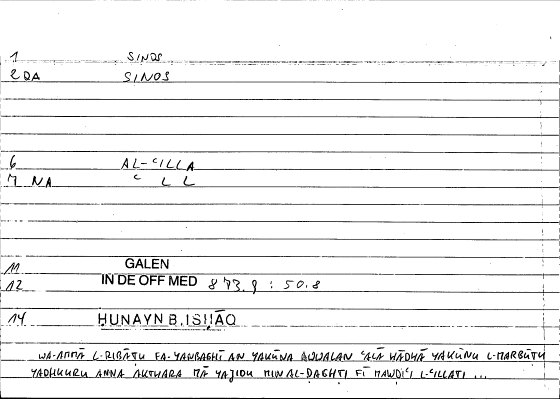 1 SINOS
2 DA SINOS
6 AL-ʿILLA
7 NA ʿ L L
11 GALEN
12 IN DE OFF MED 873.9 : 50.8
14 ḤUNAYN B. ISḤĀQ
WA-AMMĀ L-RIBĀṬU FA-YANBAGHĪ AN YAKŪNA AWWALAN ʿALĀ HĀDHĀ YAKŪNU L-MARBŪṬU
YADHKURU ANNA AKTHARA MĀ YAJIDU MIN AL-ḌAGHṬI FĪ MAWḌIʿI L-ʿILLATI ...